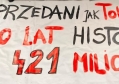 PRZEDANI jak To
0 LAT HISTO
421 MILIO